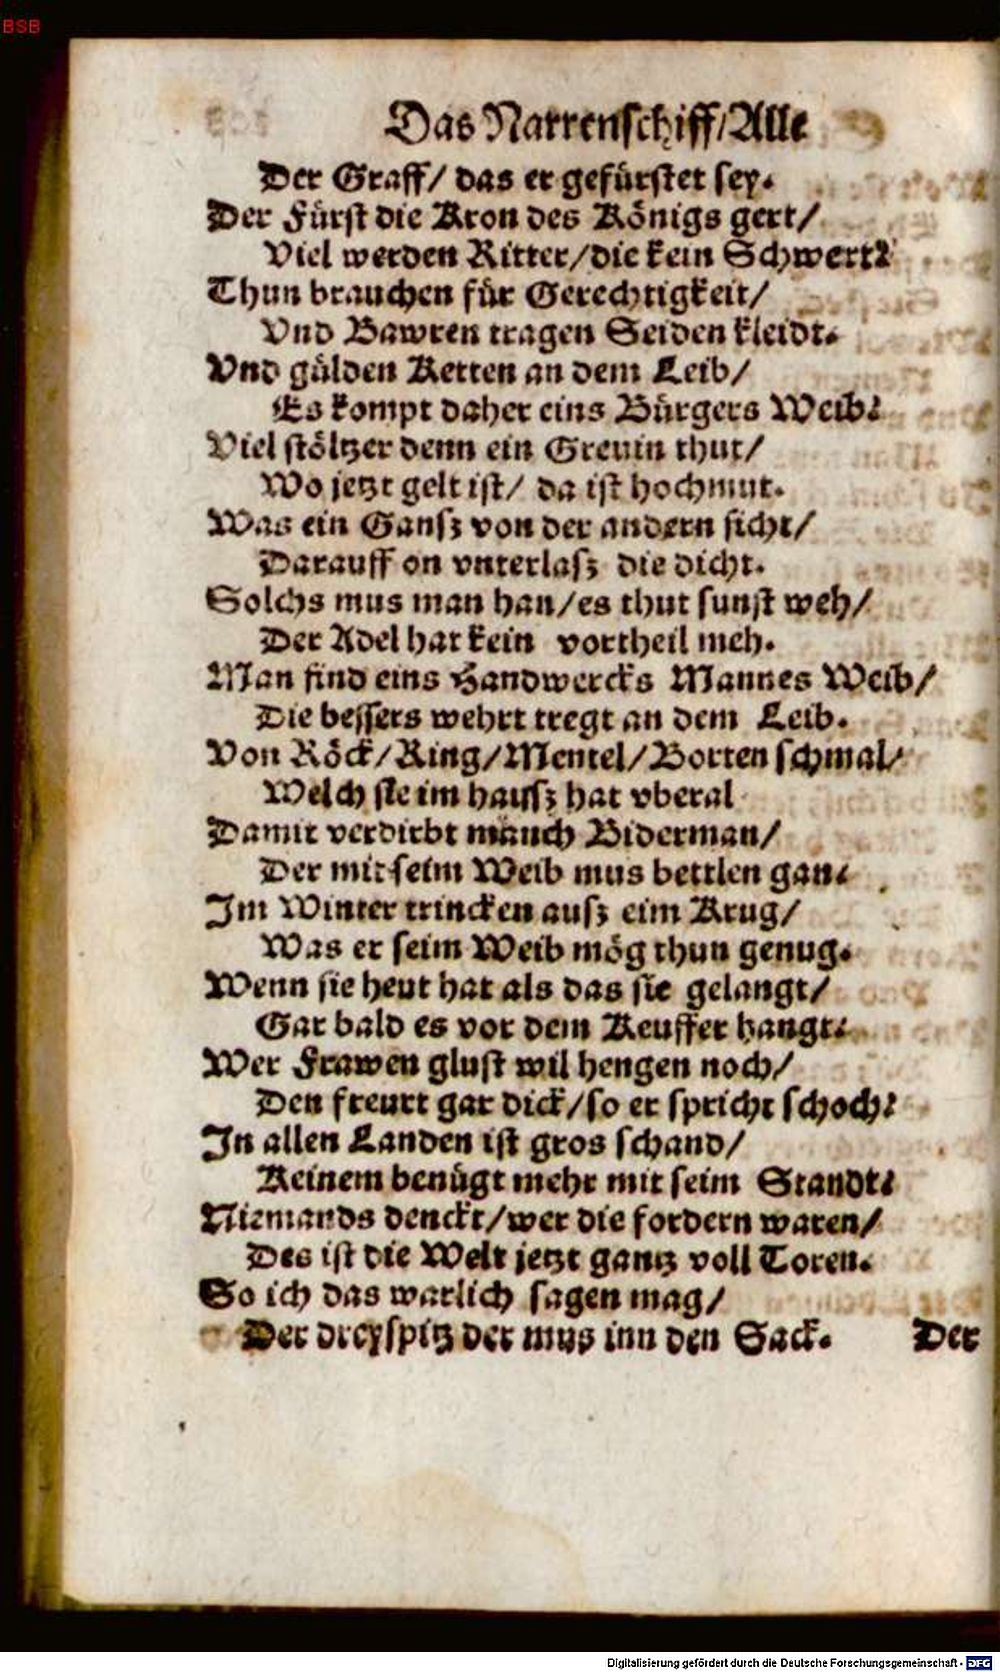 BSB
Das Narrenschiff/Alle
Der Graff/ das er gefürstet sey.
Der Fürst die Kron des Königs gert/
Viel werden Ritter/die kein Schwert:
Thun brauchen für Gerechtigkeit/
Vnd Bawren tragen Seiden kleidt.
Vnd gülden Ketten an dem Leib/
Es kompt daher eins Bürgers Weib:
Viel stöltzer denn ein Grevin thut/
Wo jetzt gelt ist/ da ist hochmut.
Was ein Gansz von der andern sicht/
Darauff on vnterlasz die dicht.
Solchs mus man han/es thut sunst weh/
Der Adel hat kein vortheil meh.
Man find eins Handwercks Mannes Weib/
Die bessers wehrt tregt an dem Leib.
Von Röck/Ring/Mentel/Borten schmal/
Welch sie im hausz hat vberal
Damit verdirbt manch Biderman/
Der mit seim Weib mus bettlen gan:
Im Winter trincken ausz eim Krug/
Was er seim Weib mög thun genug.
Wenn sie heut hat als das sie gelangt/
Gar bald es vor dem Keuffer hangt:
Wer Frawen glust wil hengen noch/
Den freurt gar dick/so er spricht schoch:
In allen Landen ist gros schand/
Keinem benügt mehr mit seim Standt:
Niemands denckt/wer die fordern waren/
Des ist die Welt jetzt gantz voll Toren.
So ich das warlich sagen mag/
Der dreyspitz der mus inn den Sack.
Der
Digitalisierung gefördert durch die Deutsche Forschungsgemeinschaft - DFG